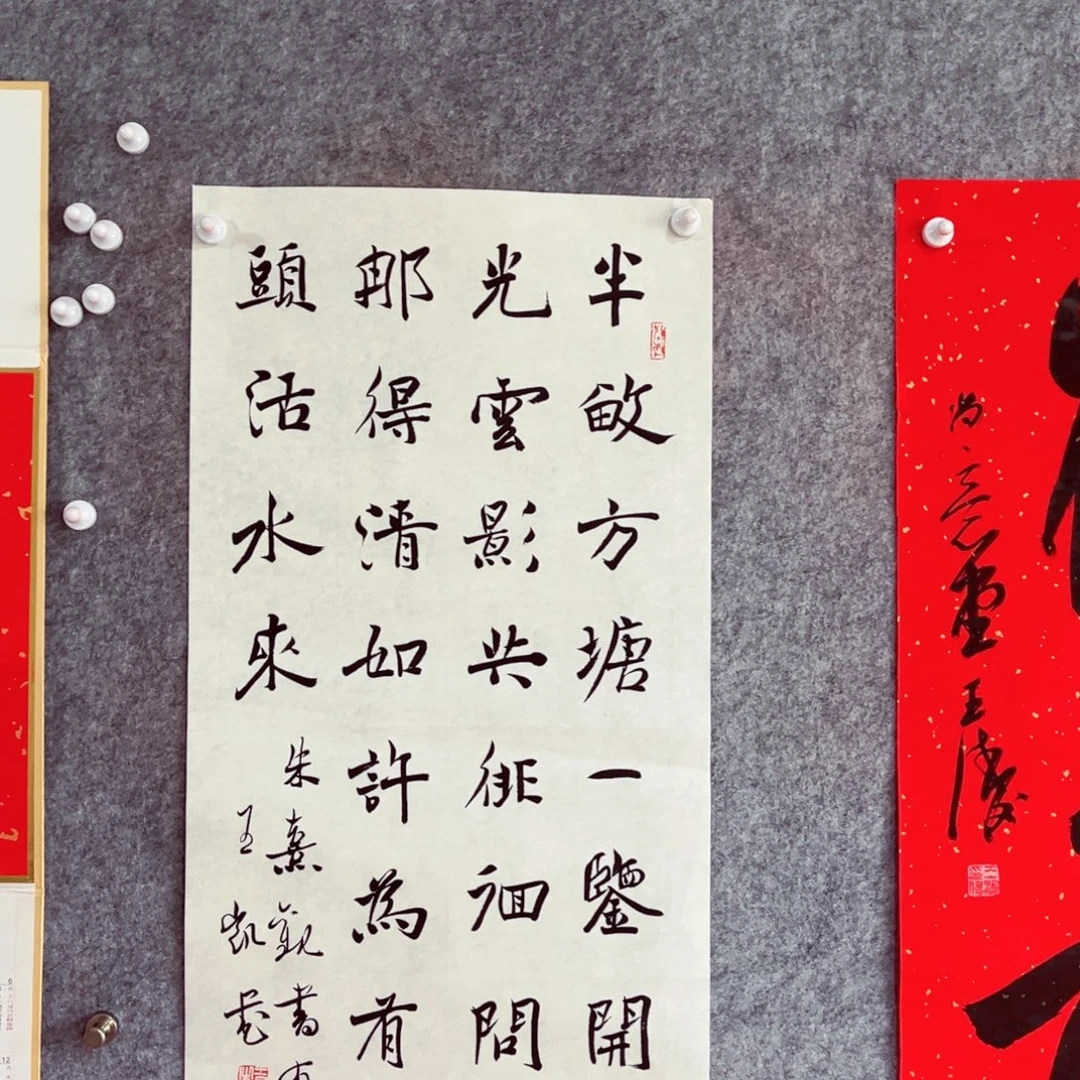 半畝方塘一鑒開
光雲影共徘徊問
那得清如許為有
頭活水來
朱熹觀書有
王凱
王